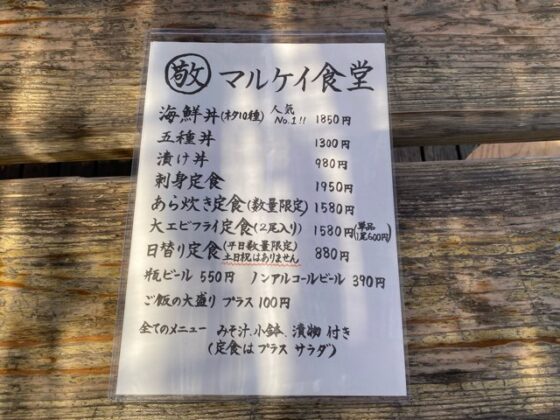 敬 マルケイ食堂
海鮮丼(ネタ10種) 人気No.1!! 1850円
五種丼 1300円
漬け丼 980円
刺身定食 1950円
あら炊き定食(数量限定) 1580円
大エビフライ定食(2尾入り) 1580円(単品1尾600円)
日替り定食(平日数量限定 土日祝はありません) 880円
瓶ビール 550円 ノンアルコールビール 390円
ご飯の大盛り プラス 100円
全てのメニュー みそ汁、小鉢、漬物 付き
(定食はプラス サラダ)